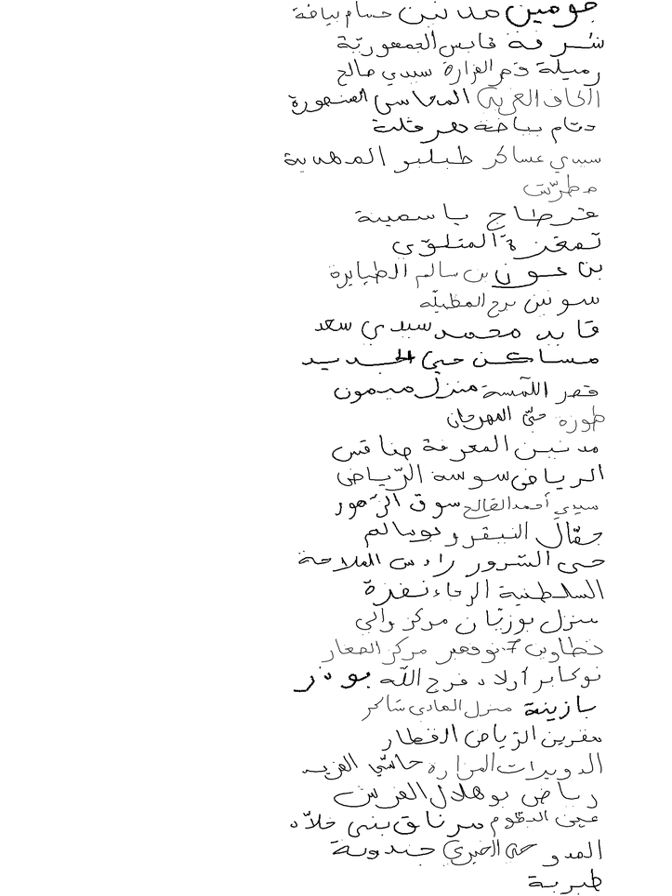 جومين مدنين حسام بياضة
شرفة قابس الجمهوريّة
رميلة قصر القزارة سيدي صالح
الحاف الغربيّ المحاسن المنصورة
حمّام بياضة هرقلة
سيدي عساكر طبلبو المهدية
مطرّت
قرطاج ياسمينة
تمغزة المتلوّي
بن عون بن سالم الطيايرة
سونين برج المظيلّة
قايد محمد سيدي سعد
مساكن حيّ الجديد
قصر اللّمسة منزل ميمون
طوزة حيّ المهرجان
مدنين المعرفة صفاقس
الرياض سوسة الرّياض
سيدي أحمد الصّالح سوق الزّهور
حفّال النيقرو بوسالم
حي السّرور رادس الملاحة
السلطنية الرحاء نفزة
منزل بوزيّان مركز والي
تطاوين 7 نوفمبر مركز العمار
نوكاير أولاد فرج اللّه بوذر
بازينة منزل الهادي شاكر
مقرين الرّياض القطار
الدويرات المزارة حاسّي الفريد
رياض بوهلال العرش
عين البطّوم مرناق بني خلاّد
العدو حي الخيري جندوبة
طبربة